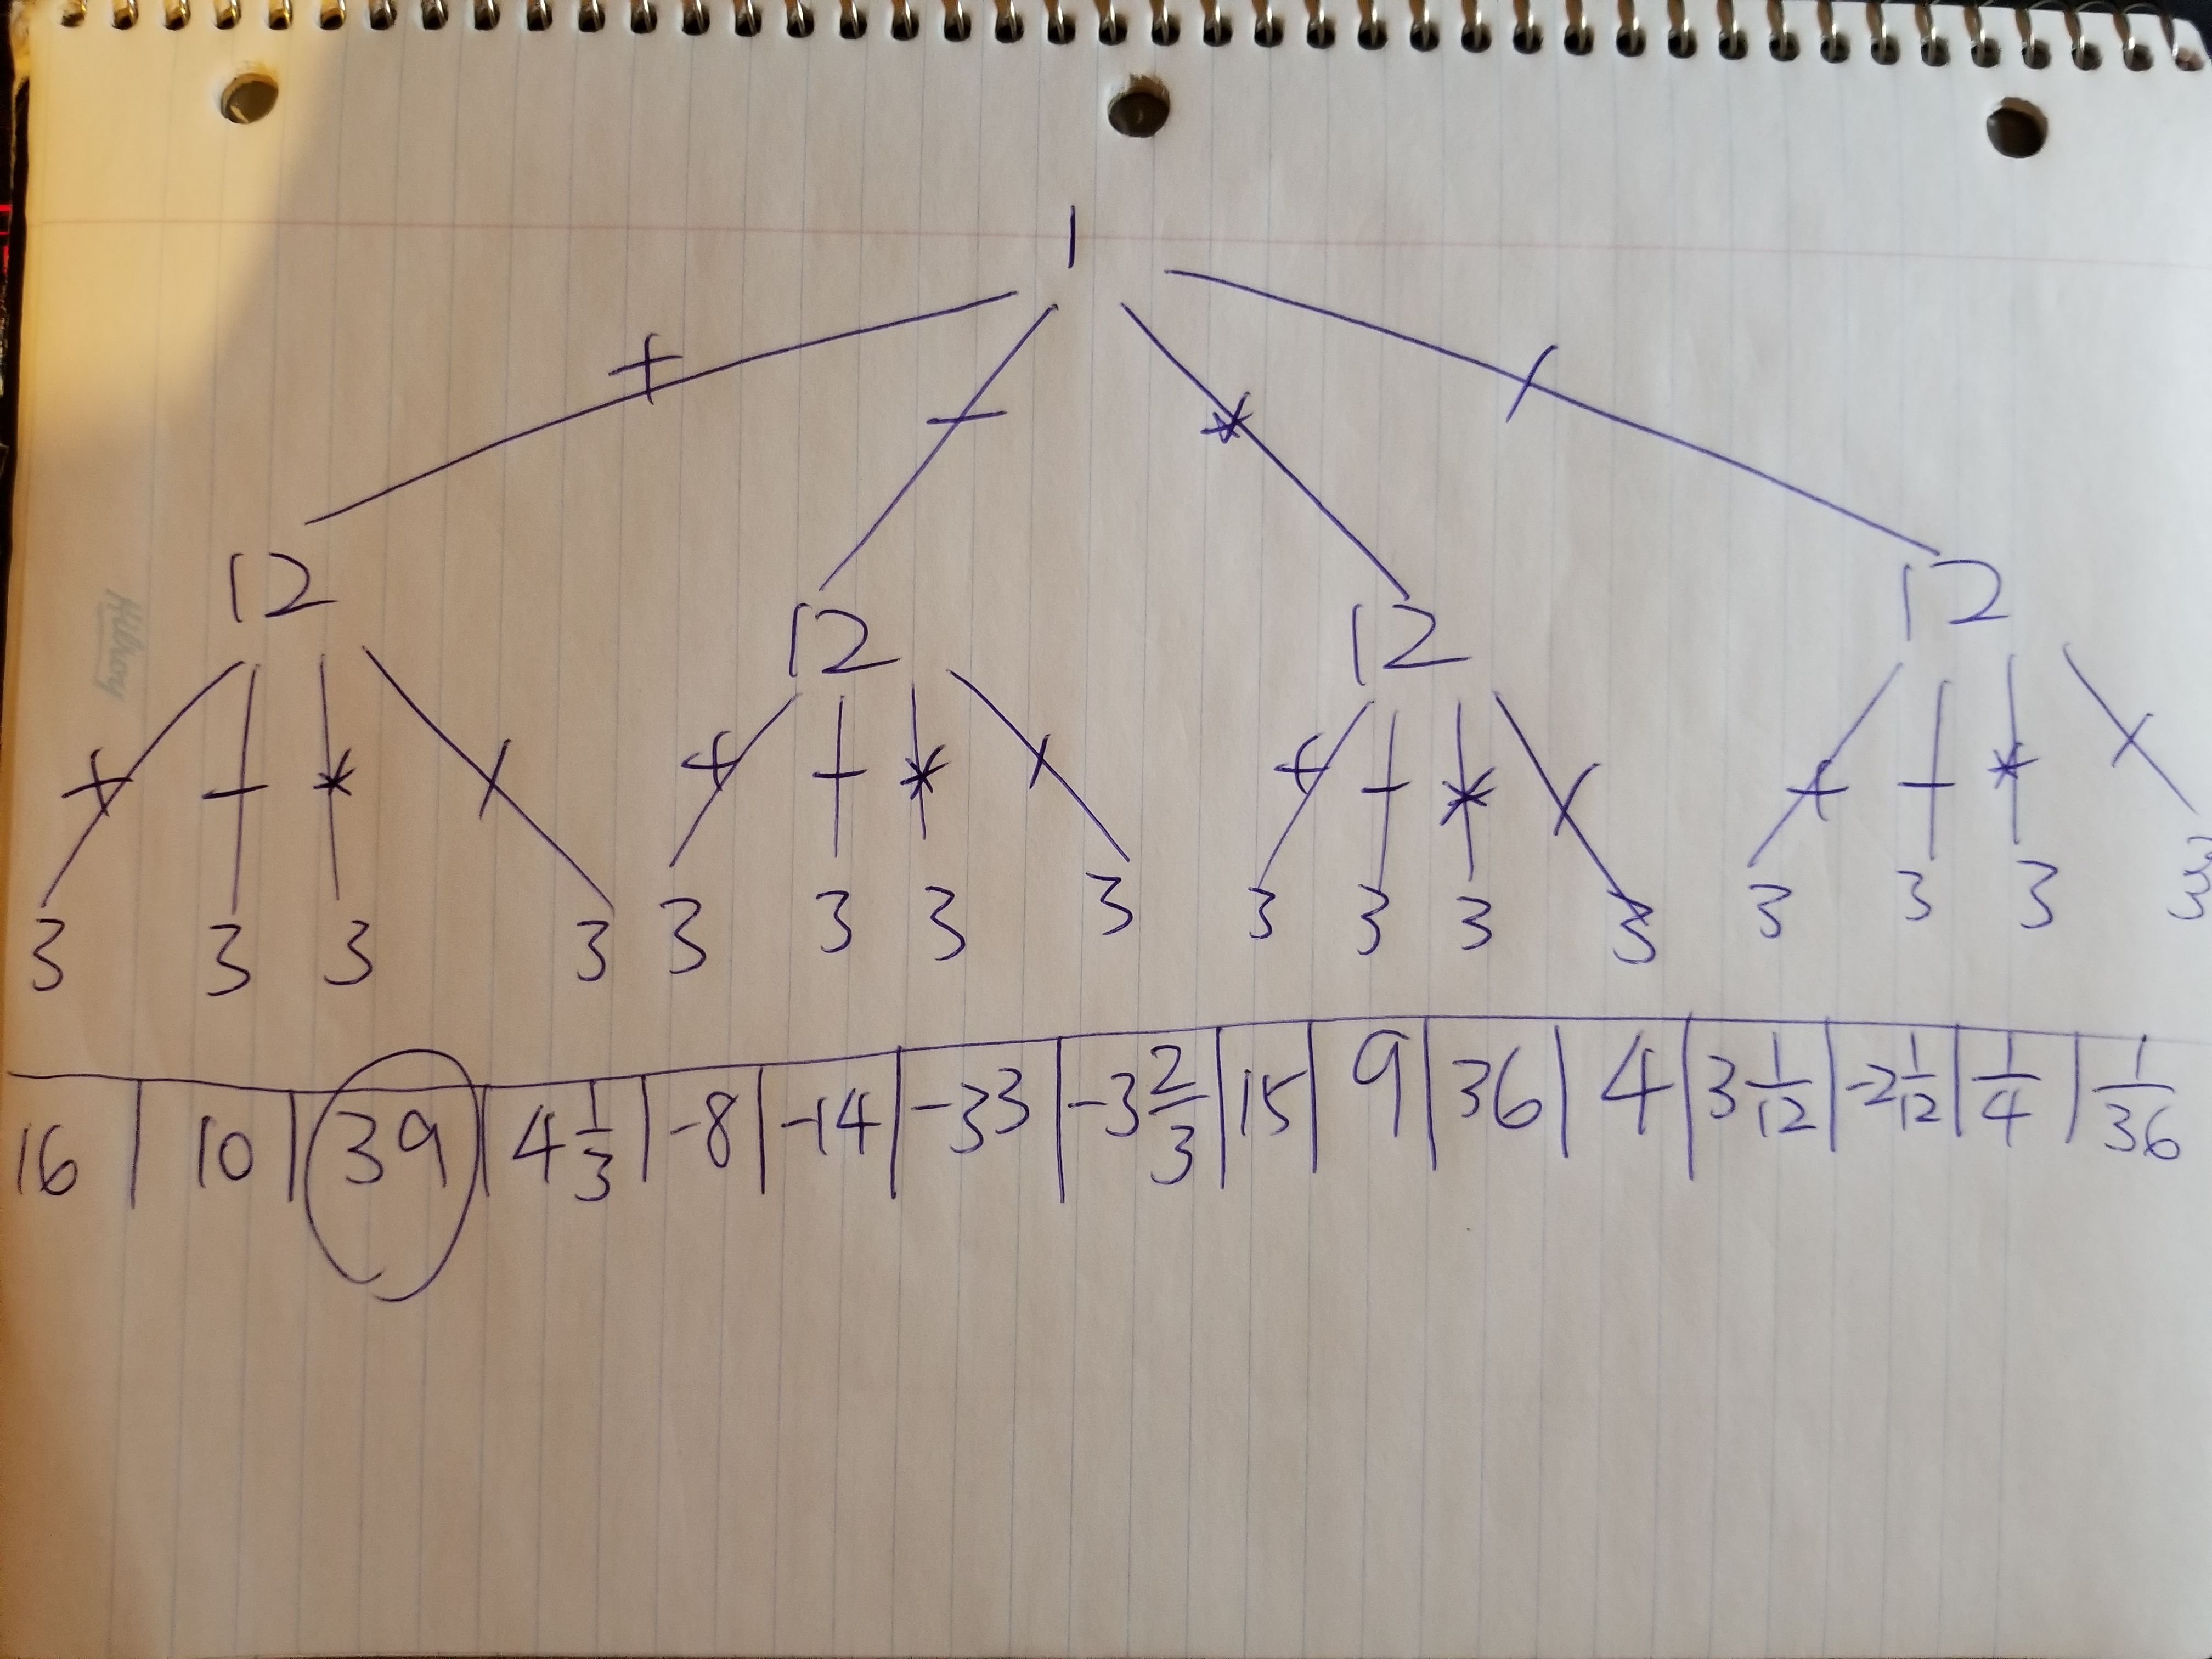 1
+ - * /
12 12 12 12
+ - * / + - * / + - * / + - * /
3 3 3 3 3 3 3 3 3 3 3 3 3 3 3 3
16 | 10 | 39 | 4 1/3 | -8 | -14 | -33 | -3 2/3 | 15 | 9 | 36 | 4 | 3 1/12 | -2 1/12 | 1/4 | 1/36
Hilroy